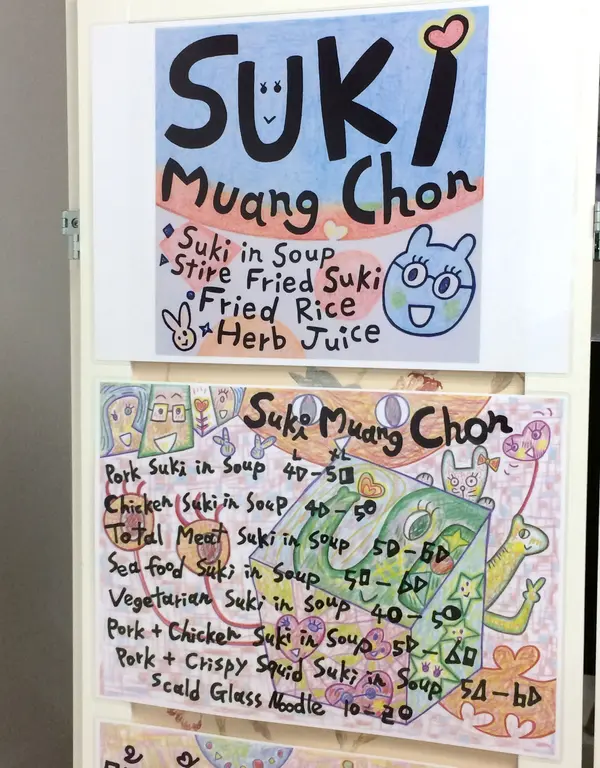 SUKi
Muang Chon
Suki in Soup
Stire Fried Suki
Fried Rice
Herb Juice
Suki Muang Chon
L XL
Pork Suki in Soup 40-50
Chicken Suki in Soup 40-50
Total Meat Suki in Soup 50-60
Sea food Suki in Soup 50-60
Vegetarian Suki in Soup 40-50
Pork + Chicken Suki in Soup 50-60
Pork + Crispy Squid Suki in Soup 50-60
Scald Glass Noodle 10-20